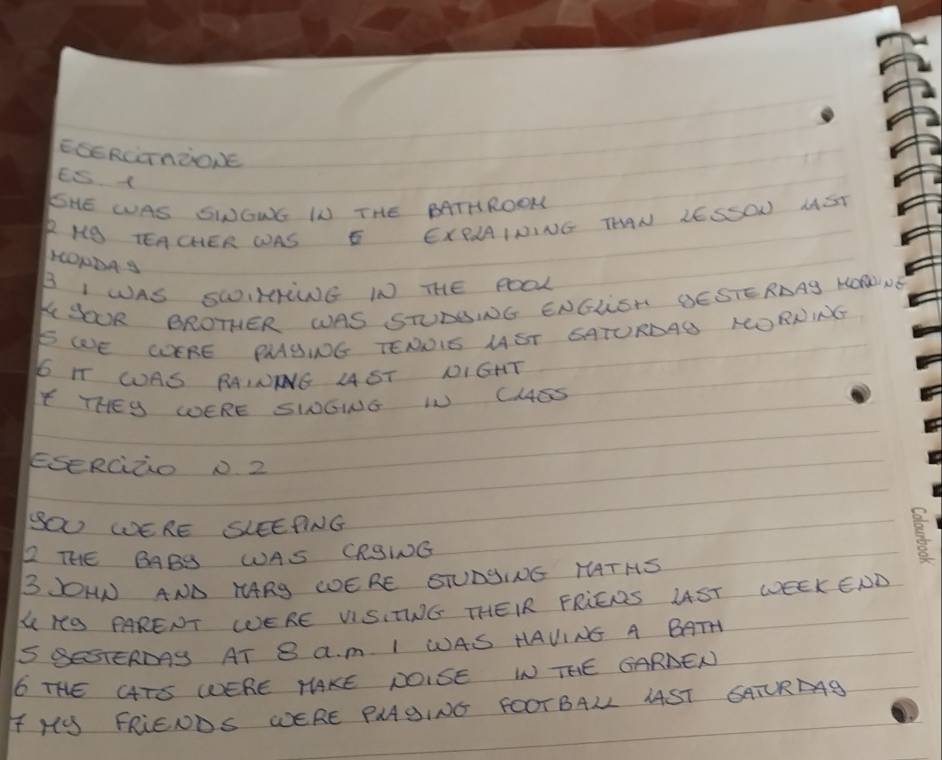 ESERCITAZIONE
ES. 1
SHE WAS SINGING IN THE BATHROOM
2 MY TEACHER WAS E EXPLAINING THAN LESSON LAST
MONDAY
3 I WAS SWIMMING IN THE POOL
4 YOUR BROTHER WAS STUDYING ENGLISH YESTERDAY MORNING
5 WE WERE PLAYING TENNIS LAST SATURDAY MORNING
6 IT WAS RAINING LAST NIGHT
7 THEY WERE SINGING IN CLASS
ESERCIZIO N. 2
YOU WERE SLEEPING
2 THE BABY WAS CRYING
3 JOHN AND MARY WERE STUDYING MATHS
4 MY PARENT WERE VISITING THEIR FRIENDS LAST WEEK END
5 YESTERDAY AT 8 a.m. I WAS HAVING A BATH
6 THE CATS WERE MAKE NOISE IN THE GARDEN
7 MY FRIENDS WERE PLAYING FOOTBALL LAST SATURDAY
Colourbook